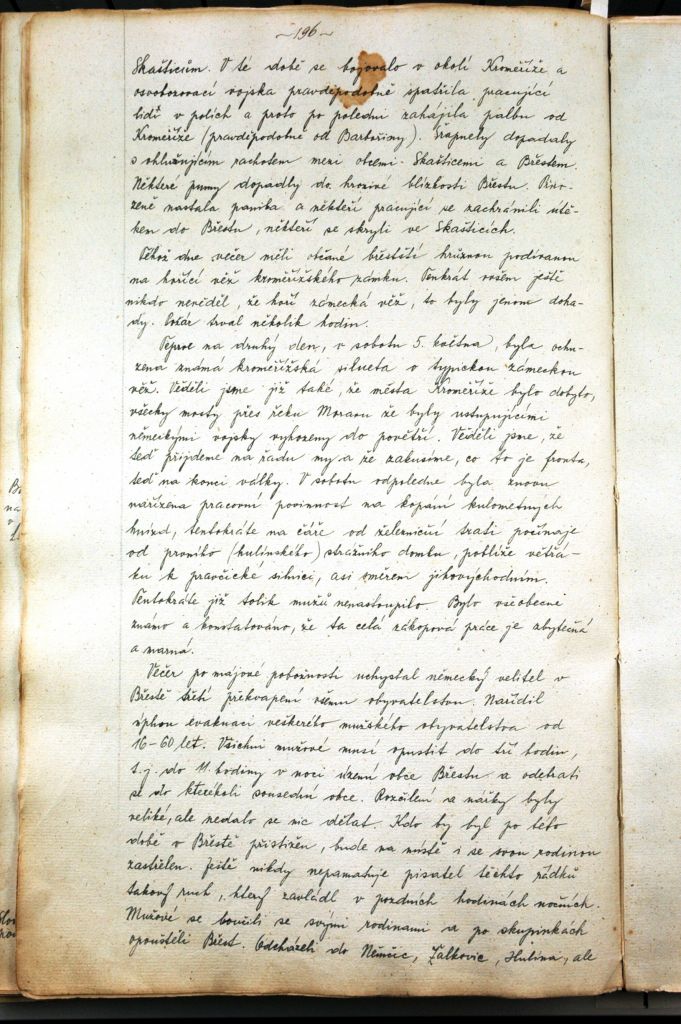 ~196~
Skašticům. V té době se bojovalo v okolí Kroměříže a
osvobozovací vojska pravděpodobně spatřila pracující
lidi v polích a proto po poledni zahájila palbu od
Kroměříže (pravděpodobně od Barbořiny). Šrapnely dopadaly
s ohlušujícím rachotem mezi obcemi Skašticemi a Břestem.
Některé pumy dopadly do hrozivé blízkosti Břestu. Přiro-
zeně nastala panika a někteří pracující se zachránili útě-
kem do Břestu, někteří se skryli ve Skašticích.
Téhož dne večer měli občané břestští hrůznou podívanou
na hořící věž kroměřížského zámku. Tenkrát ovšem ještě
nikdo nevěděl, že hoří zámecká věž, to byly jenom doha-
dy. Požár trval několik hodin.
Teprve na druhý den, v sobotu 5. května, byla ochu-
zena známá kroměřížská silueta o typickou zámeckou
věž. Věděli jsme již také, že město Kroměříže bylo dobyto,
všecky mosty přes řeku Moravu že byly ustupujícími
německými vojsky vyhozeny do povětří. Věděli jsme, že
teď přijdeme na řadu my a že zakusíme, co to je fronta,
teď na konci války. V sobotu odpoledne byla znovu
nařízena pracovní povinnost na kopání kulometných
hnízd, tentokráte na čáře od železniční trati počínaje
od prvního (hulínského) strážního domku, poblíže větřá-
ku k pravčické silnici, asi směrem jihovýchodním.
Tentokráte již tolik mužů nenastoupilo. Bylo všeobecně
známo a konstatováno, že ta celá zákopová práce je zbytečná
a marná.
Večer po májové pobožnosti uchystal německý velitel v
Břestě třetí překvapení všemu obyvatelstvu. Nařídil
úplnou evakuaci veškerého mužského obyvatelstva od
16-60 let. Všichni mužové musí opustit do tří hodin,
t.j. do 11. hodiny v noci území obce Břestu a odebrati
se do kterékoli sousední obce. Rozčilení a nářky byly
veliké, ale nedalo se nic dělat. Kdo by byl po této
době v Břestě přistižen, bude na místě i se svou rodinou
zastřelen. Ještě nikdy nepamatuje pisatel těchto řádků
takový ruch, který zavládl v pozdních hodinách nočních.
Mužové se loučili se svými rodinami a po skupinkách
opouštěli Břest. Odcházeli do Němčic, Žalkovic, Hulína, ale